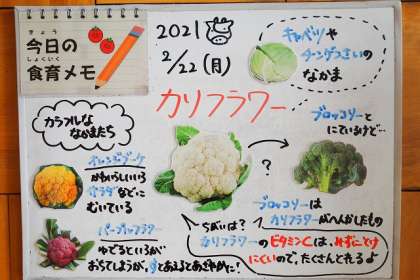 きょう
今日の
しょくいく
食育メモ
2021
2/22(月)
キャベツや
チンゲンさいの
なかま
カリフラワー
カラフルな
なかまたち
オレンジブーケ
かわいらしいいろ
サラダなどに
むいている
パープルフラワー
ゆでるといろが
おちてしまうが、すとあえるとあざやかに!
ブロッコリーと
にているけど…
?
ブロッコリーは
カリフラワーがへんかしたもの
ちがいは?
カリフラワーのビタミンCは、みずにとけ
にくいので、たくさんとれるよ